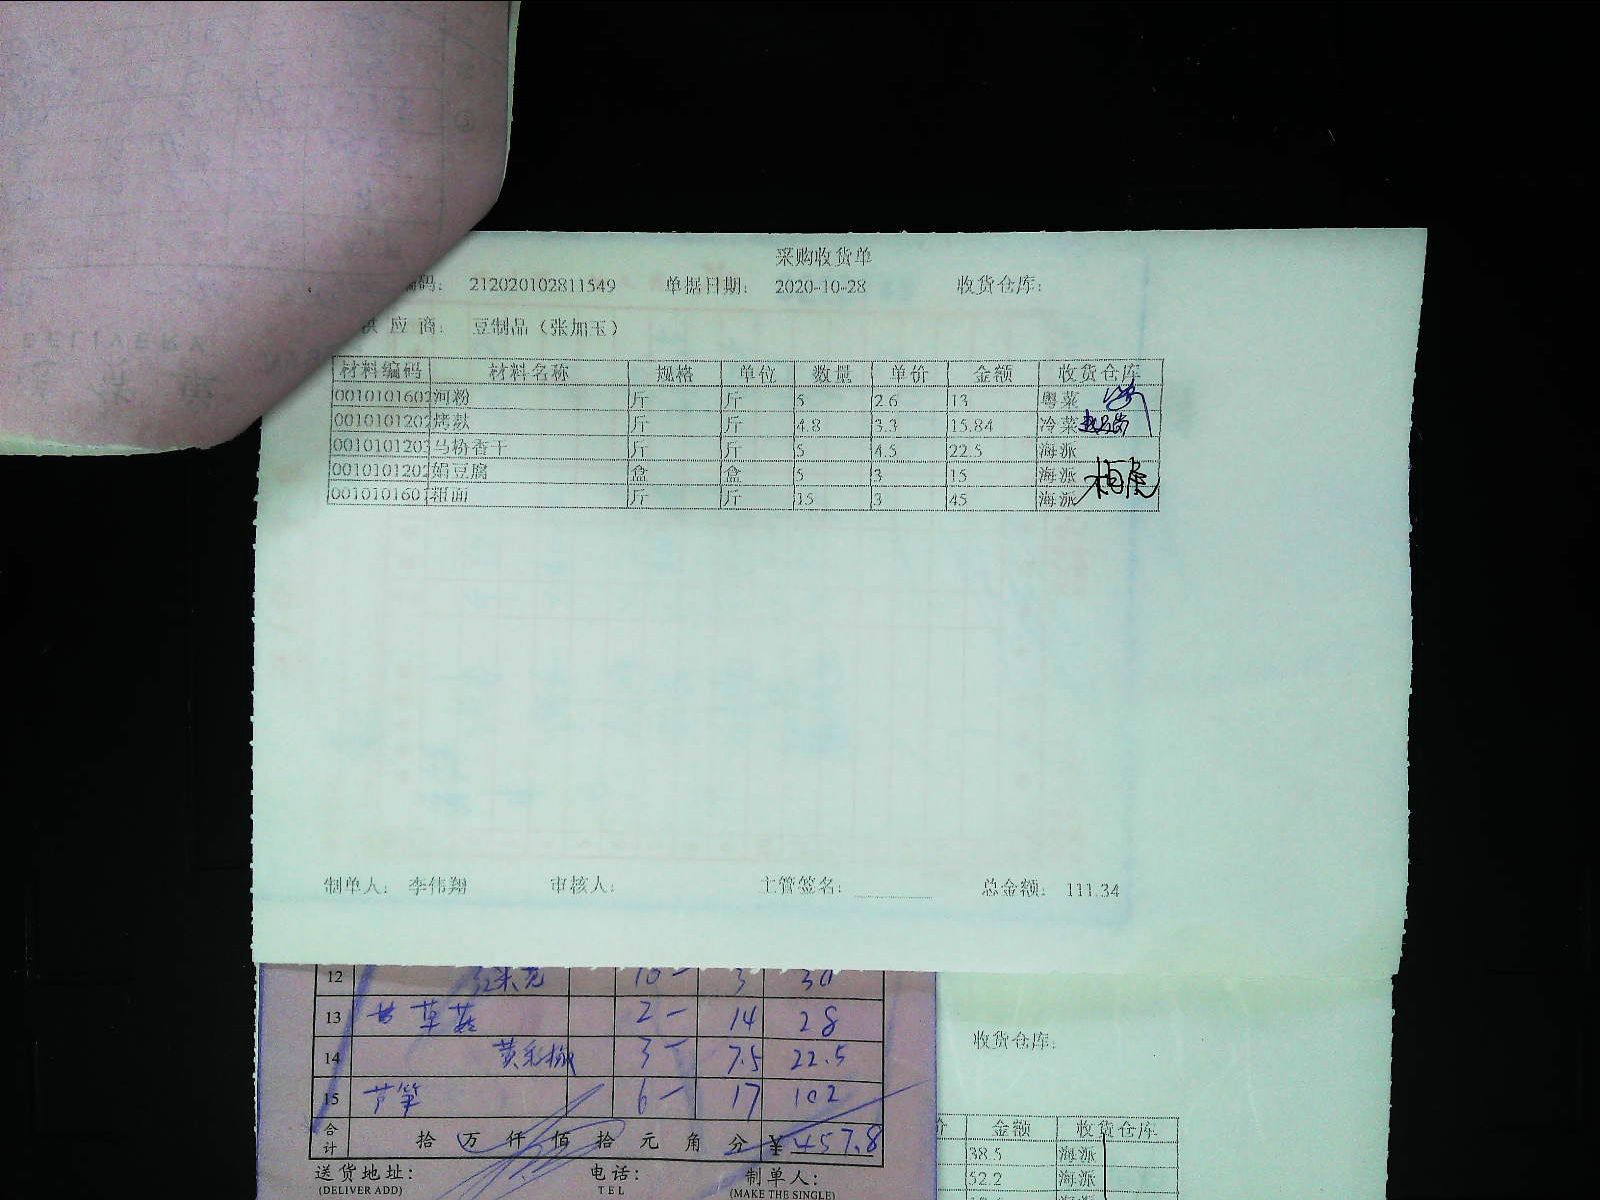 采购收货单
编码: 212020102811549 单据日期: 2020-10-28 收货仓库:
供应商: 豆制品（张加玉）
材料编码 材料名称 规格 单位 数量 单价 金额 收货仓库
0010101602 河粉 斤 斤 5 2.6 13 粤菜
0010101202 烤麸 斤 斤 4.8 3.3 15.84 冷菜
0010101203 马桥香干 斤 斤 5 4.5 22.5 海派
0010101202 绢豆腐 盒 盒 5 3 15 海派
0010101601 粗面 斤 斤 15 3 45 海派
制单人: 李伟翔 审核人: 主管签名: 总金额: 111.34
12 10- 3 30
13 草菇 2- 14 28
14 3- 7.5 22.5
15 芦笋 6- 17 102
合计 拾万仟佰拾元角分 ¥ 457.8
送货地址: 电话: 制单人:
(DELIVER ADD) TEL (MAKE THE SINGLE)
收货仓库:
金额 收货仓库
38.5 海派
52.2 海派
DELIVERY